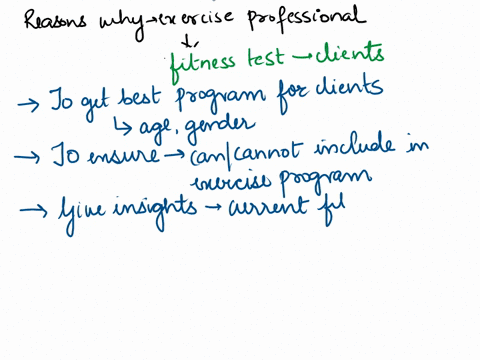 Reasons why → exercise professional
↓
fitness test → clients
→ To get best program for clients
↳ age, gender
→ To ensure → can/cannot include in
exercise program
→ Give insights → current